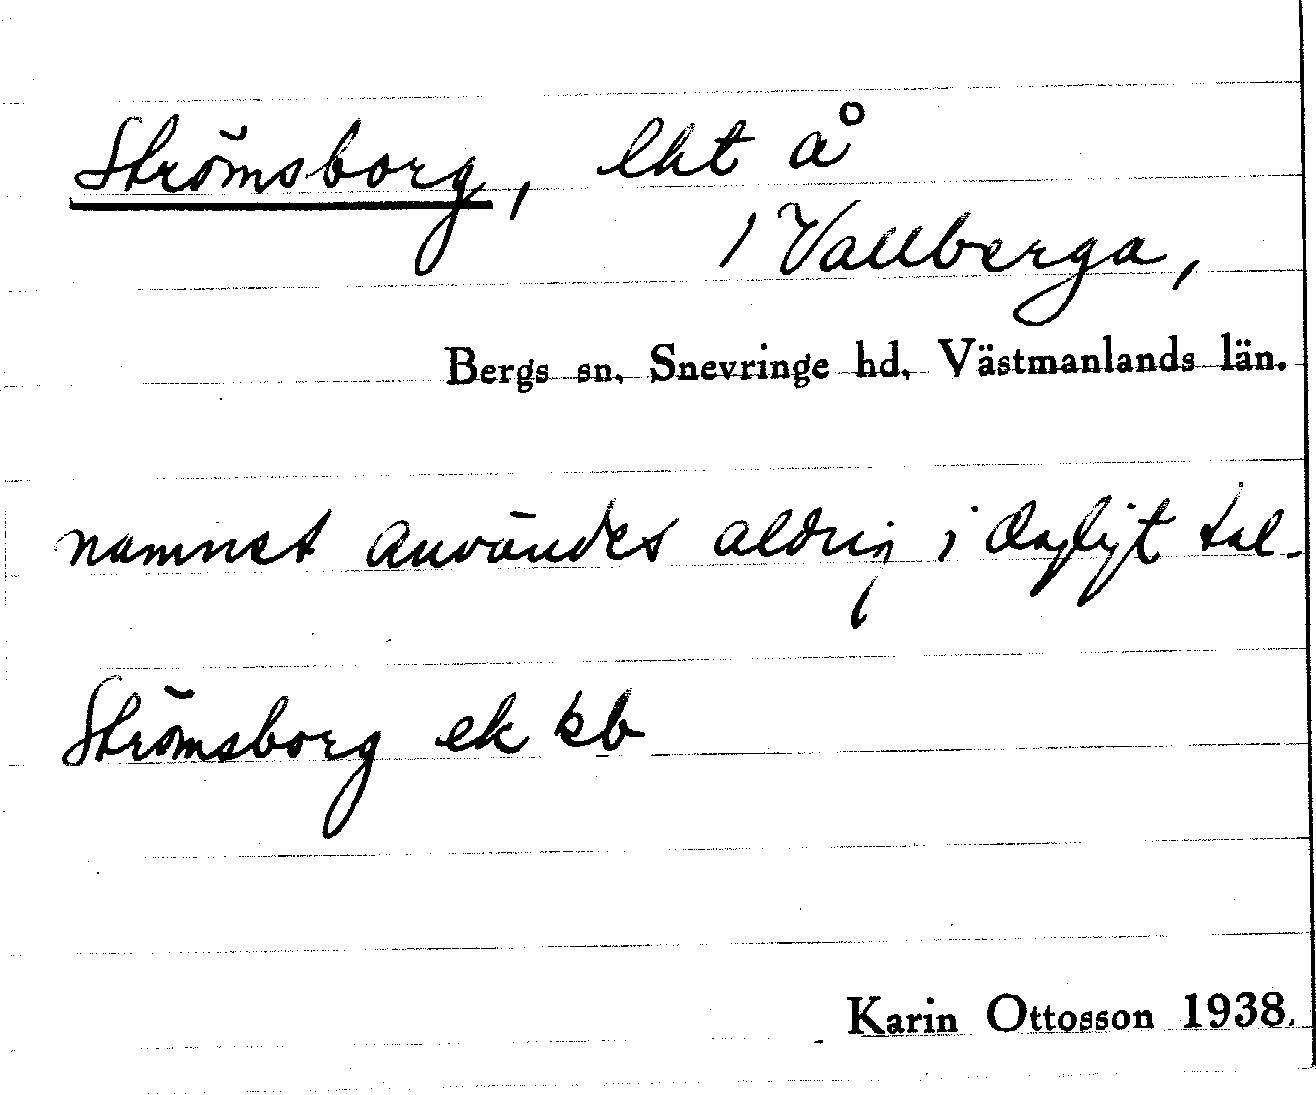 Strömsborg, lht å
1 Vallberga,
Bergs sn, Snevringe hd, Västmanlands län.
namnet användes aldrig i dagligt tal.
Strömsborg ek kb
Karin Ottosson 1938.